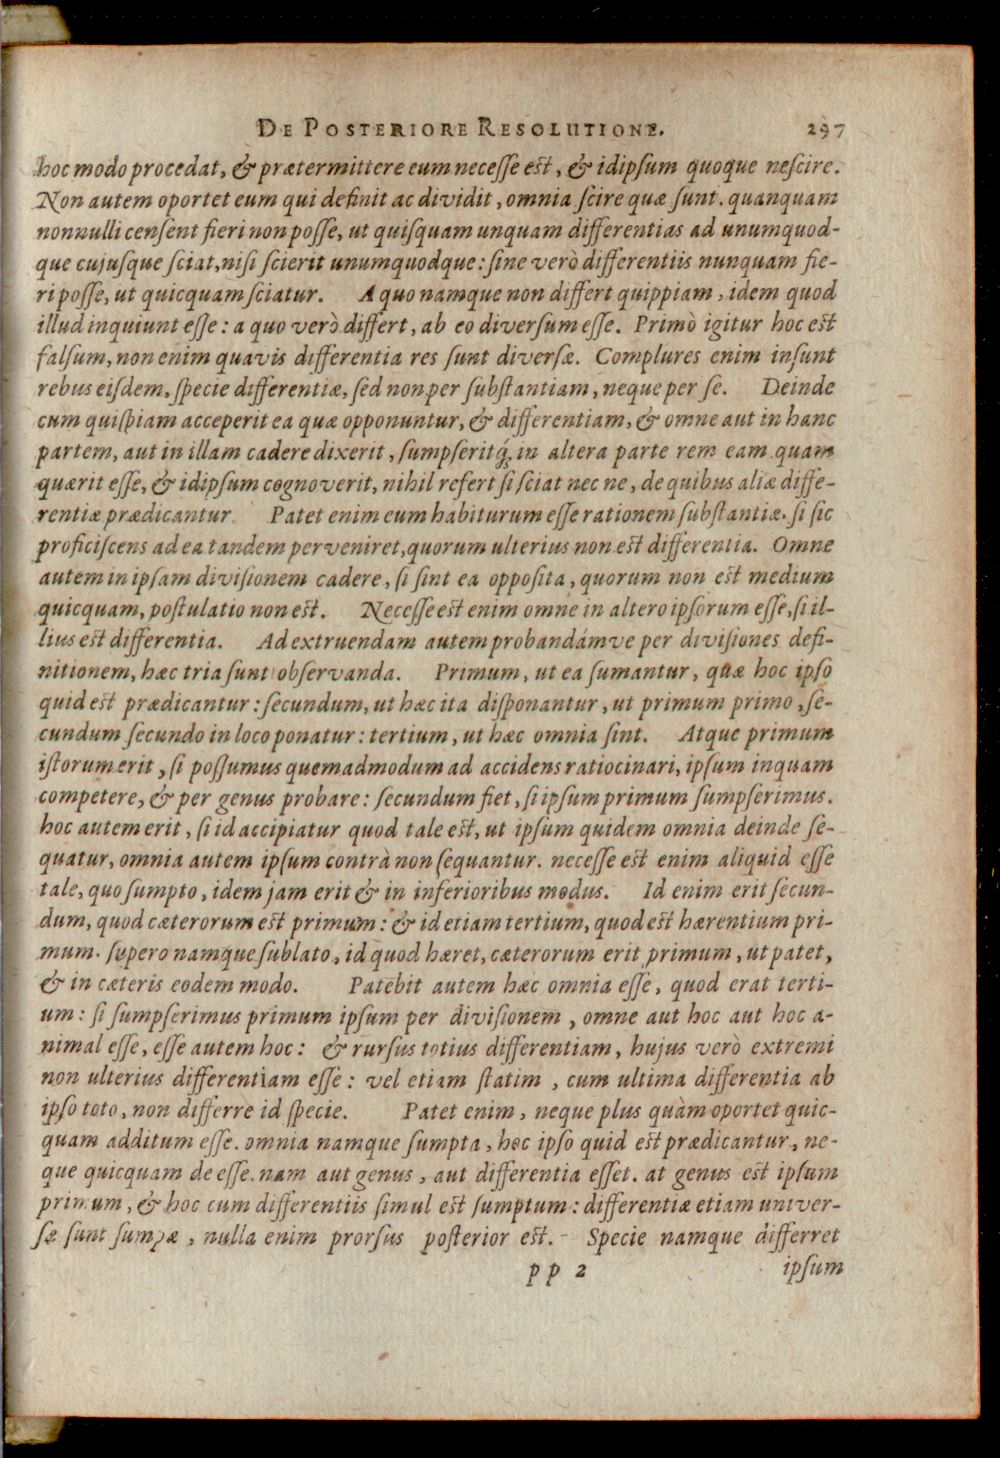 DE POSTERIORE RESOLUTIONE. 297
hoc modo procedat, & prætermittere eum necesse est, & idipsum quoque nescire.
Non autem oportet eum qui definit ac dividit, omnia scire quæ sunt. quanquam
nonnulli censent fieri non posse, ut quisquam unquam differentias ad unumquod-
que cujusque sciat, nisi scierit unumquodque: sine verò differentiis nunquam fie-
ri posse, ut quicquam sciatur. A quo namque non differt quippiam, idem quod
illud inquiunt esse: a quo verò differt, ab eo diversum esse. Primò igitur hoc est
falsum, non enim quavis differentia res sunt diversæ. Complures enim insunt
rebus eisdem, specie differentiæ, sed non per substantiam, neque per se. Deinde
cum quispiam acceperit ea quæ opponuntur, & differentiam, & omne aut in hanc
partem, aut in illam cadere dixerit, sumpseritq́; in altera parte rem eam quam
quærit esse, & idipsum cognoverit, nihil refert si sciat nec ne, de quibus aliæ diffe-
rentiæ prædicantur. Patet enim eum habiturum esse rationem substantiæ. si sic
proficiscens ad ea tandem perveniret, quorum ulterius non est differentia. Omne
autem in ipsam divisionem cadere, si sint ea opposita, quorum non est medium
quicquam, postulatio non est. Necesse est enim omne in altero ipsorum esse, si il-
lius est differentia. Ad extruendam autem probandámve per divisiones defi-
nitionem, hæc tria sunt observanda. Primum, ut ea sumantur, quæ hoc ipso
quid est prædicantur: secundum, ut hæc ita disponantur, ut primum primo, se-
cundum secundo in loco ponatur: tertium, ut hæc omnia sint. Atque primum
istorum erit, si possumus quemadmodum ad accidens ratiocinari, ipsum inquam
competere, & per genus probare: secundum fiet, si ipsum primum sumpserimus.
hoc autem erit, si id accipiatur quod tale est, ut ipsum quidem omnia deinde se-
quatur, omnia autem ipsum contrà non sequantur. necesse est enim aliquid esse
tale, quo sumpto, idem jam erit & in inferioribus modus. Id enim erit secun-
dum, quod cæterorum est primum: & id etiam tertium, quod est hærentium pri-
mum. supero namque sublato, id quod hæret, cæterorum erit primum, ut patet,
& in cæteris eodem modo. Patebit autem hæc omnia esse, quod erat terti-
um: si sumpserimus primum ipsum per divisionem, omne aut hoc aut hoc a-
nimal esse, esse autem hoc: & rursus totius differentiam, hujus verò extremi
non ulterius differentiam esse: vel etiam statim, cum ultima differentia ab
ipso toto, non differre id specie. Patet enim, neque plus quàm oportet quic-
quam additum esse. omnia namque sumpta, hoc ipso quid est prædicantur, ne-
que quicquam deesse. nam aut genus, aut differentia esset. at genus est ipsum
primum, & hoc cum differentiis simul est sumptum: differentiæ etiam univer-
sæ sunt sumpæ, nulla enim prorsus posterior est. Specie namque differret
pp 2 ipsum